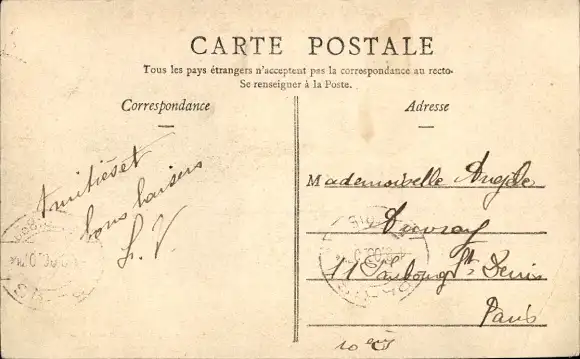 CARTE POSTALE
Tous les pays étrangers n'acceptent pas la correspondance au recto.
Se renseigner à la Poste.
Correspondance
Adresse
Amitié et
bons baisers
L. V.
Mademoiselle Angèle
Duvray
11 Faubourg St Denis
Paris
10e